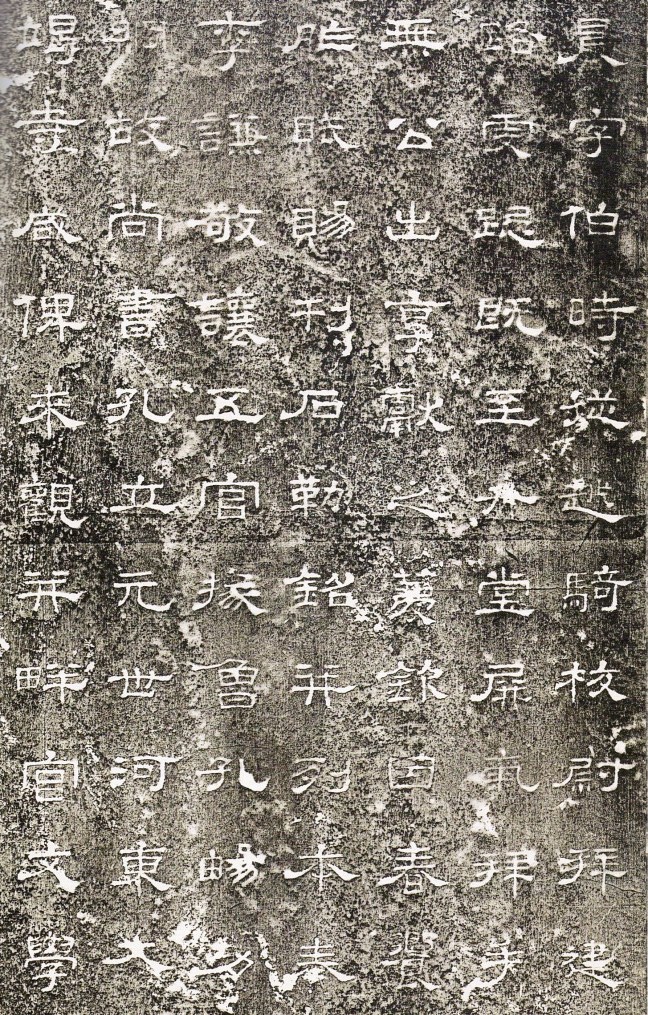 晨字伯時從越騎校尉拜建
路虔跽既至升堂屏氣拜手
無公出享獻之薦欽因春饗
胙賦賜刊石勒銘并列本奏
李謙敬讓五官掾魯孔暢功
綱故尚書孔立元世河東大
竭寒咸俾來觀并畔宮文學